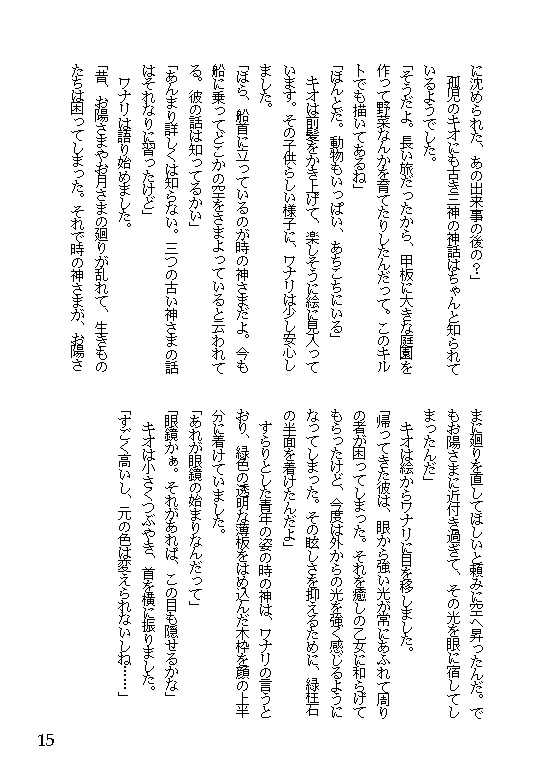 に沈められた、あの出来事の後の？」
　孤児のキオにも古き三神の神話はちゃんと知られて
いるようでした。
「そうだよ。長い旅だったから、甲板に大きな庭園を
作って野菜なんかを育てたりしたんだって。このキル
トでも描いてあるね」
「ほんとだ。動物もいっぱい、あちこちにいる」
　キオは前髪をかき上げて、楽しそうに絵に見入って
います。その子供らしい様子に、ワナリは少し安心し
ました。
「ほら、船首に立っているのが時の神さまだよ。今も
船に乗ってどこかの空をさまよっていると云われて
る。彼の話は知ってるかい」
「あんまり詳しくは知らない。三つの古い神さまの話
はそれなりに習ったけど」
　ワナリは語り始めました。
「昔、お陽さまやお月さまの廻りが乱れて、生きもの
たちは困ってしまった。それで時の神さまが、お陽さ
まに廻りを直してほしいと頼みに空へ昇ったんだ。で
もお陽さまに近付き過ぎて、その光を眼に宿してし
まったんだ」
　キオは絵からワナリに目を移しました。
「帰ってきた彼は、眼から強い光が常にあふれて周り
の者が困ってしまった。それを癒しの乙女に和らげて
もらったけど、今度は外からの光を強く感じるように
なってしまった。その眩しさを抑えるために、緑柱石
の半面を着けたんだよ」
　すらりとした青年の姿の時の神は、ワナリの言うと
おり、緑色の透明な薄板をはめ込んだ木枠を顔の上半
分に着けていました。
「あれが眼鏡の始まりなんだって」
「眼鏡かぁ。それがあれば、この目も隠せるかな」
　キオは小さくつぶやき、首を横に振りました。
「すごく高いし、元の色は変えられないしね……」
15